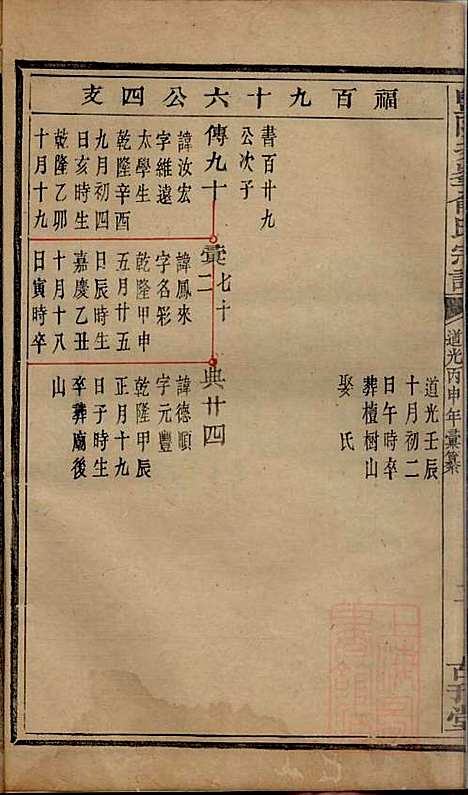 福百九十六公四支
書百廿九
公次子
傳九十
諱汝宏
字維遠
太學生
乾隆辛酉
九月初四
日亥時生
乾隆乙卯
十月十九
彙二
七十
諱鳳來
字名彩
乾隆甲申
五月廿五
日辰時生
嘉慶乙丑
十月十八
日寅時卒
道光壬辰
十月初二
日午時卒
葬檀樹山
娶氏
典廿四
諱德順
字元豐
乾隆甲辰
正月十九
日子時生
卒葬廟後
山
俞氏宗譜
道光丙申年彙纂